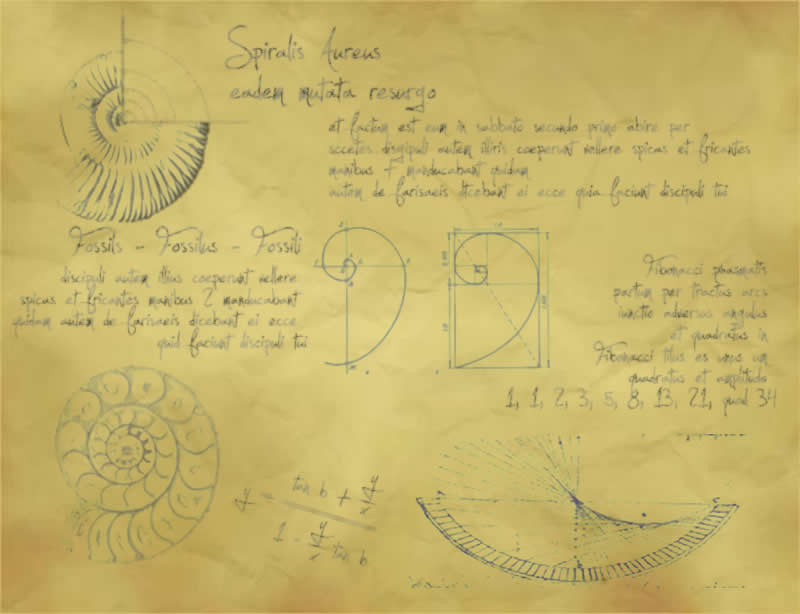 Spiralis Aureus
eadem mutata resurgo
et factum est eum in sabbato secundo primo abire per
sccetes disgipuli autem illiris coeperunt vellere spicas et fricantes
manibus + manducabant quidam
autem de farisaeis dicebant ei ecce quia faciunt discipuli tui
Fossils - Fossilus - Fossili
discipuli autem illius coeperunt vellere
spicas et fricantes manibus 2 manducabant
quidam autem de farisaeis dicebant ei ecce
quid faciunt discipuli tui
Fibonacci
partum per tractus arcs
iunctio adversus angulus
et quadratus in
Fibonacci tilus es unus un
quadratus et amplitudo
1, 1, 2, 3, 5, 8, 13, 21, quad 34
y
tan b + y/x
1 - y/x tan b